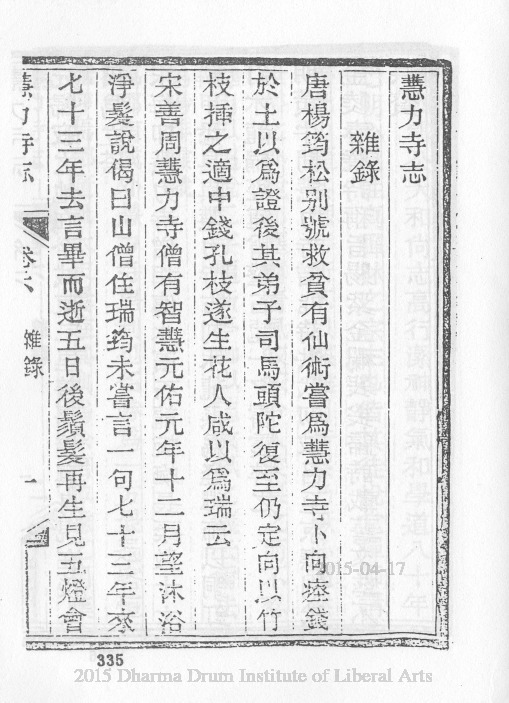 慧力寺志
雜錄
唐楊筠松别號救貧有仙術嘗爲慧力寺卜向瘞錢
於土以爲證後其弟子司馬頭陀復至仍定向以竹
枝揷之適中錢孔枝遂生花人咸以爲瑞云
宋善周慧力寺僧有智慧元佑元年十二月望沐浴
淨髮說偈曰山僧住瑞筠未嘗言一句七十三年來
七十三年去言畢而逝五日後鬚髮再生見五燈會
慧力寺志 卷六 雜錄 一
2015-04-17
335
2015 Dharma Drum Institute of Liberal Arts